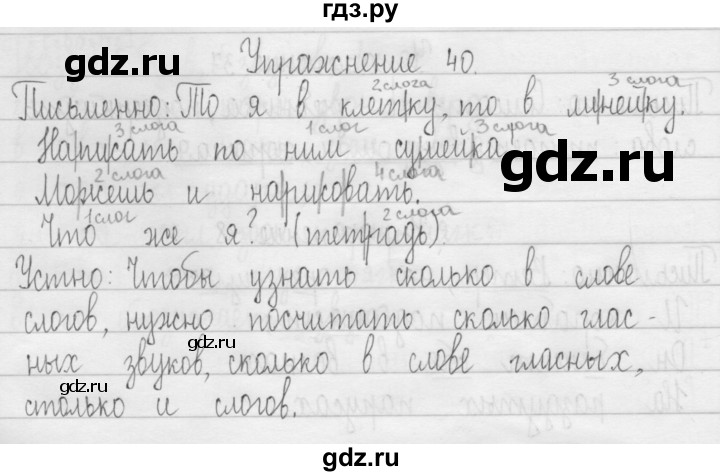 гдз.ру
gdz.ru
gdz.ru
Упражнение 40.
2 слога 3 слога
Письменно: То я в клетку, то в линейку.
3 слога 1 слог 3 слога
Написать по ним сумей-ка
gdz.ru
2 слога 4 слога
Можешь и нарисовать.
1 слог 2 слога
Что же я? (тетрадь).
gdz.ru
gdz.ru
Устно: Чтобы узнать сколько в слове
слогов, нужно посчитать сколько глас-
ных звуков, сколько в слове гласных,
gdz.ru
gdz.ru
столько и слогов.
gdz.ru